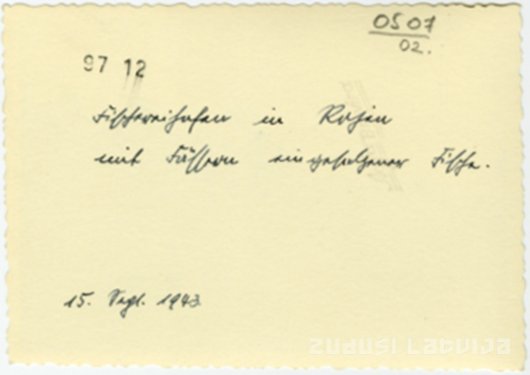 0507
02.
97 12
Fischereihafen in Rojen
mit Fässern eingesalzener Fische.
15. Sept. 1943
zudusi Latvija